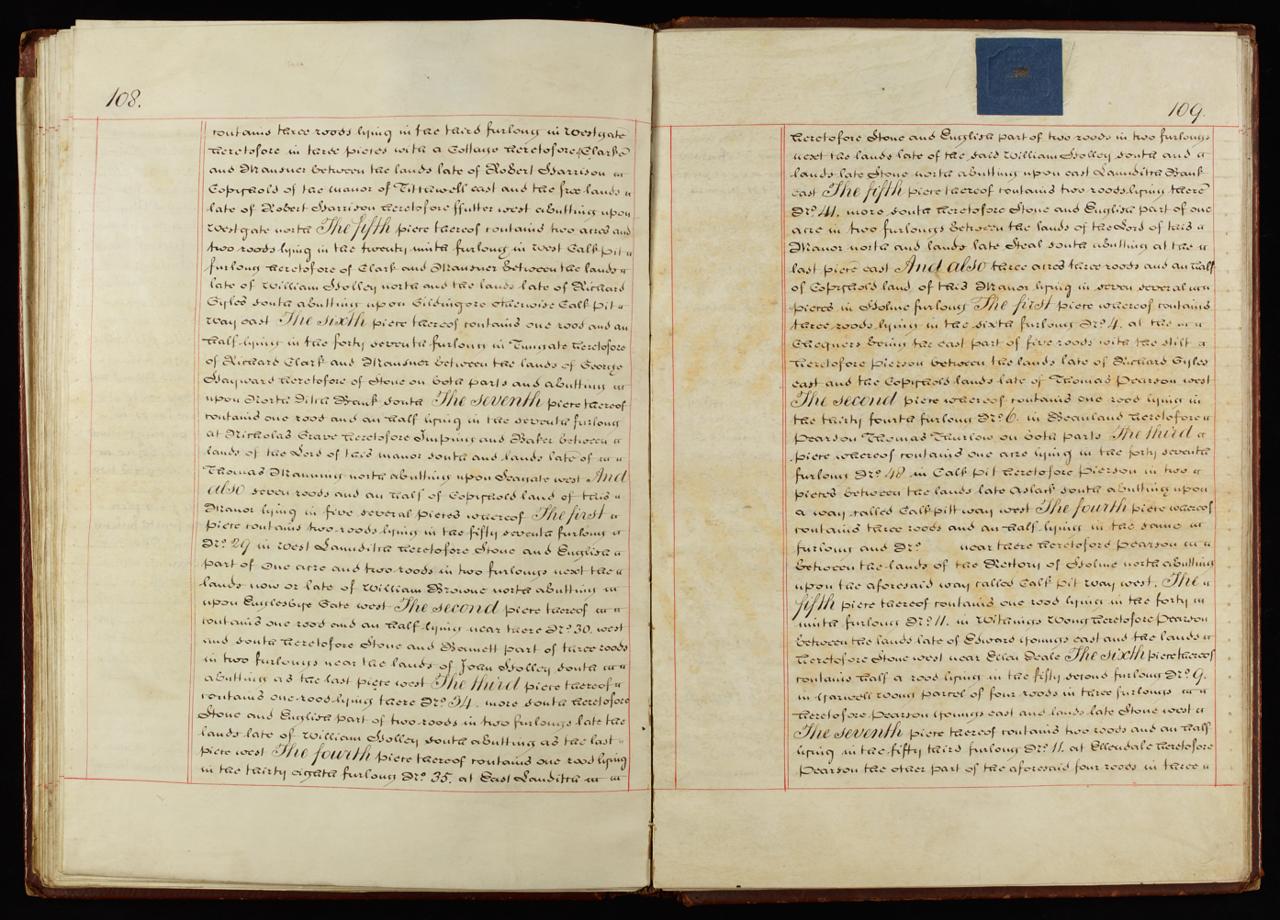 108.
contains three roods lying in the third furlong in Westgate
heretofore in three pieces with a Cottage heretofore Clark
and Mansuer between the lands late of Robert Harrison
Copyhold of the manor of Titchwell east and the free lands
late of Robert Harrison heretofore ffuller west abutting upon
Westgate north The fifth piece thereof contains two acres and
two roods lying in the twenty ninth furlong in West Calk Pit
furlong heretofore of Clark and Mansuer between the lands
late of William Holley north and the lands late of Richard
Gyles south abutting upon Gildingore otherwise Calk Pit
way east The sixth piece thereof contains one rood and an
half lying in the forty seventh furlong in Tungate heretofore
of Richard Clark and Mansuer between the lands of George
Hayward heretofore of Stone on both parts and abutting
upon North Ditch Bank south The seventh piece thereof
contains one rood and an half lying in the seventh furlong
at Nicholas Grave heretofore Imping and Baker between
lands of the Lord of this manor south and lands late of
Thomas Manning north abutting upon Seagate west And
also seven roods and an half of Copyhold land of this
Manor lying in five several pieces whereof The first
piece contains two roods lying in the fifty seventh furlong
No. 29 in West Launditch heretofore Stone and English
part of One acre and two roods in two furlongs next the
lands now or late of William Browne north abutting
upon Englesbye Gate west The second piece thereof
contains one rood and an half lying near there No. 30. west
and south heretofore Stone and Bannett part of three roods
in two furlongs near the lands of John Holley south
abutting as the last piece west The third piece thereof
contains one rood lying there No. 34. more south heretofore
Stone and English part of two roods in two furlongs late the
lands late of William Holley south abutting as the last
piece west The fourth piece thereof contains one rood lying
in the thirty eighth furlong No. 35. at East Landitch
109.
heretofore Stone and English part of two roods in two furlongs
next the lands late of the said William Holley south and
lands late Stone north abutting upon east Launditch Bank
east The fifth piece thereof contains two roods lying there
No. 41. more south heretofore Stone and English part of one
acre in two furlongs between the lands of the Lord of this
Manor north and lands late Steal south abutting at the
last piece east And also three acres three roods and an half
of Copyhold land of this Manor lying in seven several
pieces in Holme furlong The first piece whereof contains
three roods lying in the sixth furlong No. 4. at the
Chequers being the east part of five roods with the stilt
heretofore Pierson between the lands late of Richard Gyles
east and the Copyhold lands late of Thomas Pearson west
The second piece whereof contains one rood lying in
the thirty fourth furlong No. 6. in Beanland heretofore
Pearson Thomas Thurlow on both parts The third
piece whereof contains one acre lying in the forty seventh
furlong No. 48 in Calk Pit heretofore Pierson in two
pieces between the lands late Aslack south abutting upon
a way called Calk pitt way west The fourth piece whereof
contains three roods and an half lying in the same
furlong and No. near there heretofore Pearson
between the lands of the Rectory of Holme north abutting
upon the aforesaid way called Calk Pit way west. The
fifth piece thereof contains one rood lying in the forty
ninth furlong No. 11. in Withings Wong heretofore Pearson
between the lands late of Edward Youngs east and the lands
heretofore Stone west near Ellen Deale The sixth piece thereof
contains half a rood lying in the fifty second furlong No. 9.
in Yarwell wong parcel of four roods in three furlongs
heretofore Pearson Youngs east and lands late Stone west
The seventh piece thereof contains two roods and an half
lying in the fifty third furlong No. 11. at Ellendale heretofore
Pearson the other part of the aforesaid four roods in three